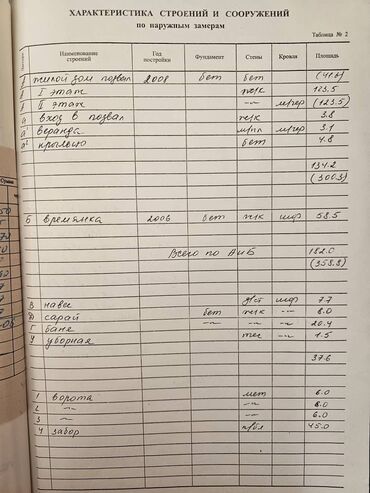 ХАРАКТЕРИСТИКА СТРОЕНИЙ И СООРУЖЕНИЙ
по наружным замерам
Таблица № 2
Наименование строений Год постройки Фундамент Стены Кровля Площадь
жилой дом подвал 2008 бет бет (41.6)
I этаж 123.5
II этаж -"- (123.5)
вход в подвал 3.8
веранда 3.1
а² крыльцо бет 4.8
134.2
(300.3)
Б времянка 2006 бет шиф 58.5
Всего по АиБ 182.0
(358.8)
В навес шиф 7.7
сарай бет -"- 8.0
Г баня -"- -"- -"- 20.4
У уборная тес -"- 1.5
37.6
1 ворота мет 6.0
2 -"- -"- 6.0
3 -"- -"- 6.0
4 забор 45.0